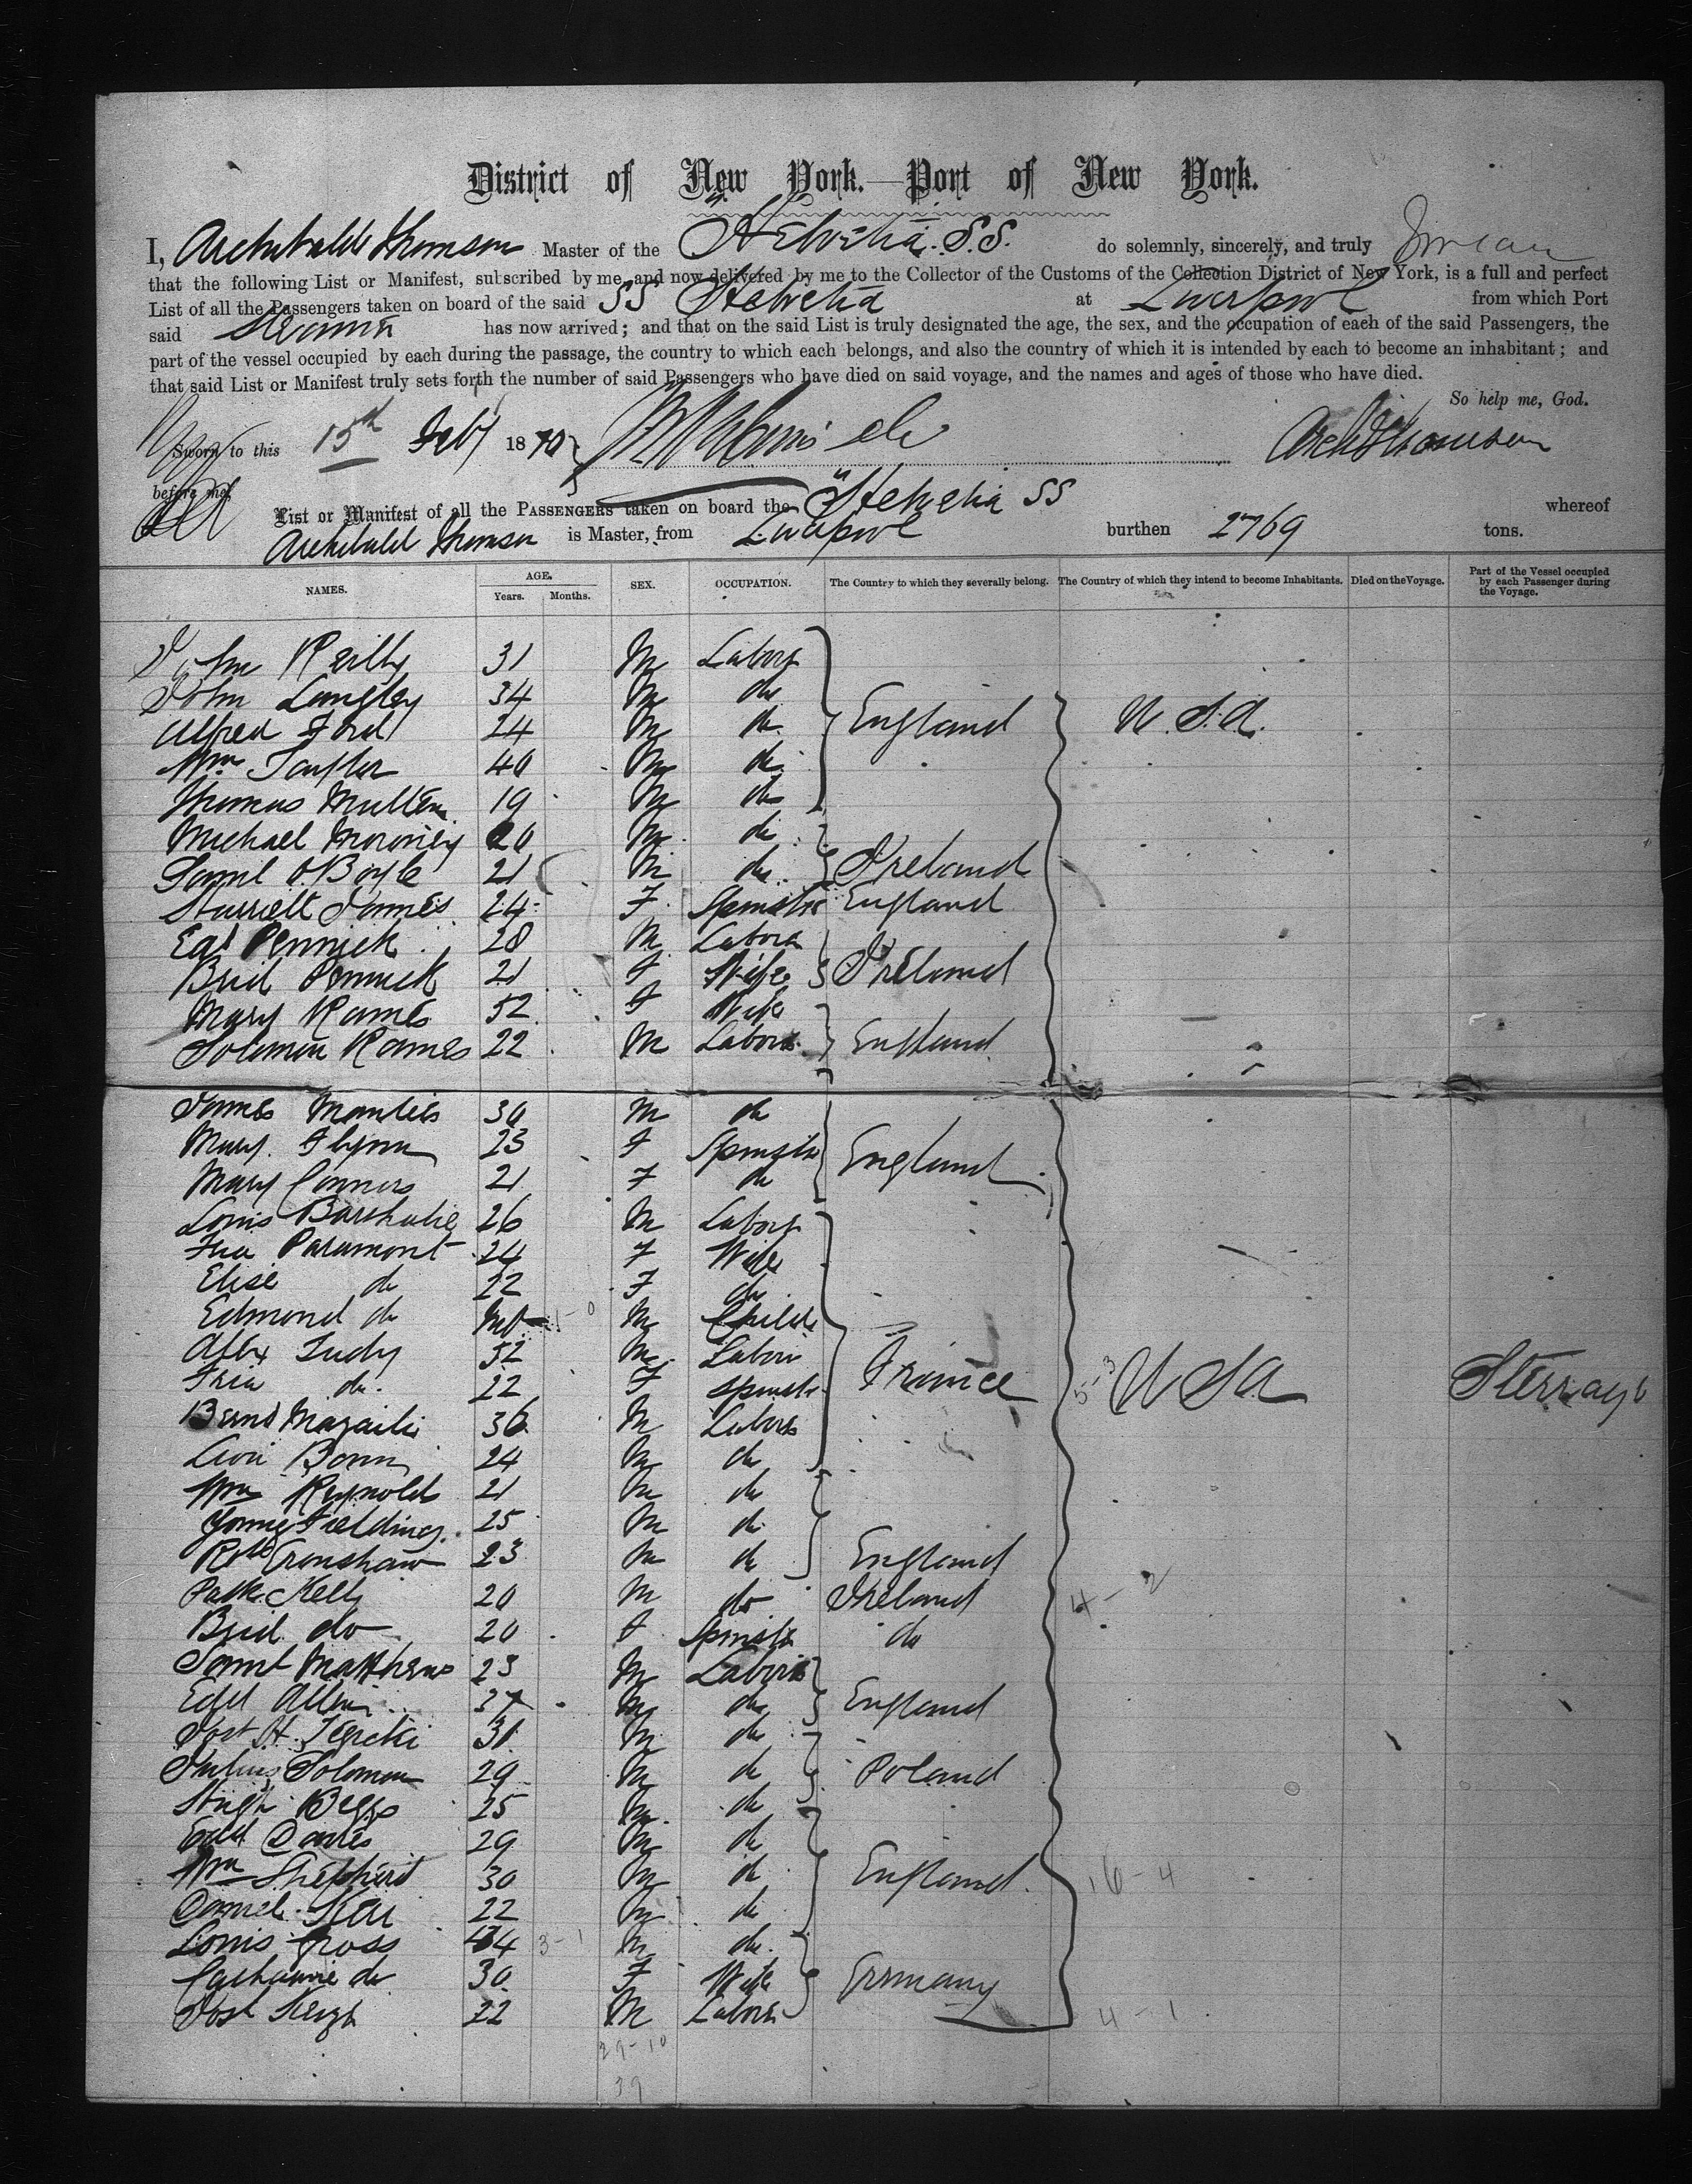 District of New York.—Port of New York.
I, Archibald Thomson Master of the Helvetia. S.S. do solemnly, sincerely, and truly Swear
that the following List or Manifest, subscribed by me, and now delivered by me to the Collector of the Customs of the Collection District of New York, is a full and perfect
List of all the Passengers taken on board of the said SS Helvetia at Liverpool from which Port
said Steamer has now arrived; and that on the said List is truly designated the age, the sex, and the occupation of each of the said Passengers, the
part of the vessel occupied by each during the passage, the country to which each belongs, and also the country of which it is intended by each to become an inhabitant; and
that said List or Manifest truly sets forth the number of said Passengers who have died on said voyage, and the names and ages of those who have died.
So help me, God.
Sworn to this 15th Feby 1870 Archd Thomson
before me,
List or Manifest of all the PASSENGERS taken on board the Helvetia SS whereof
Archibald Thomson is Master, from Liverpool burthen 2769 tons.
NAMES. AGE. Years. Months. SEX. OCCUPATION. The Country to which they severally belong. The Country of which they intend to become Inhabitants. Died on the Voyage. Part of the Vessel occupied by each Passenger during the Voyage.
John Reilly 31 M Labor
John Langley 34 M do
Alfred Ford 24 M do England U.S.A.
Wm Taylor 40 M do
Thomas Mullen 19 M do
Michael Moroney 20 M do
Saml O.Boyle 21 M do Ireland
James 24 F Spinster England
Ed Pennick 28 M Labor
Brid Pennick 21 F Wife Ireland
Mary Rames 52 F Wife
Solomon Rames 22 M Labor England
James 30 M do
Mary Flynn 23 F Spinster England
Mary Connors 21 F do
Louis 26 M Labor
Paramont 24 F Wife
Elise do 22 F do
Edmond do Inf M Child
Alex Judy 52 M Labor
do. 22 F Spinstr France USA Sterrage
Bernd 36 M Labor
24 M do
Wm Reynolds 21 M do
Fielding 25 M do
Robt Cronshaw 23 M do England
Patk Kelly 20 M do Ireland 4-2
Brid do 20 F Spinstr do
Saml Matthews 23 M Labor
Edd Allen 37 M do England
31 M do
Julius Solomon 29 M do Poland
Hugh Beggs 25 M do
Edd Davies 29 M do
Wm Shepherd 30 M do England 16-4
Daniel 22 M do
Louis Gross 44 3-1 M do
Catharine do 30 F Wife Germany
22 M Labor 4-1
29-10
39